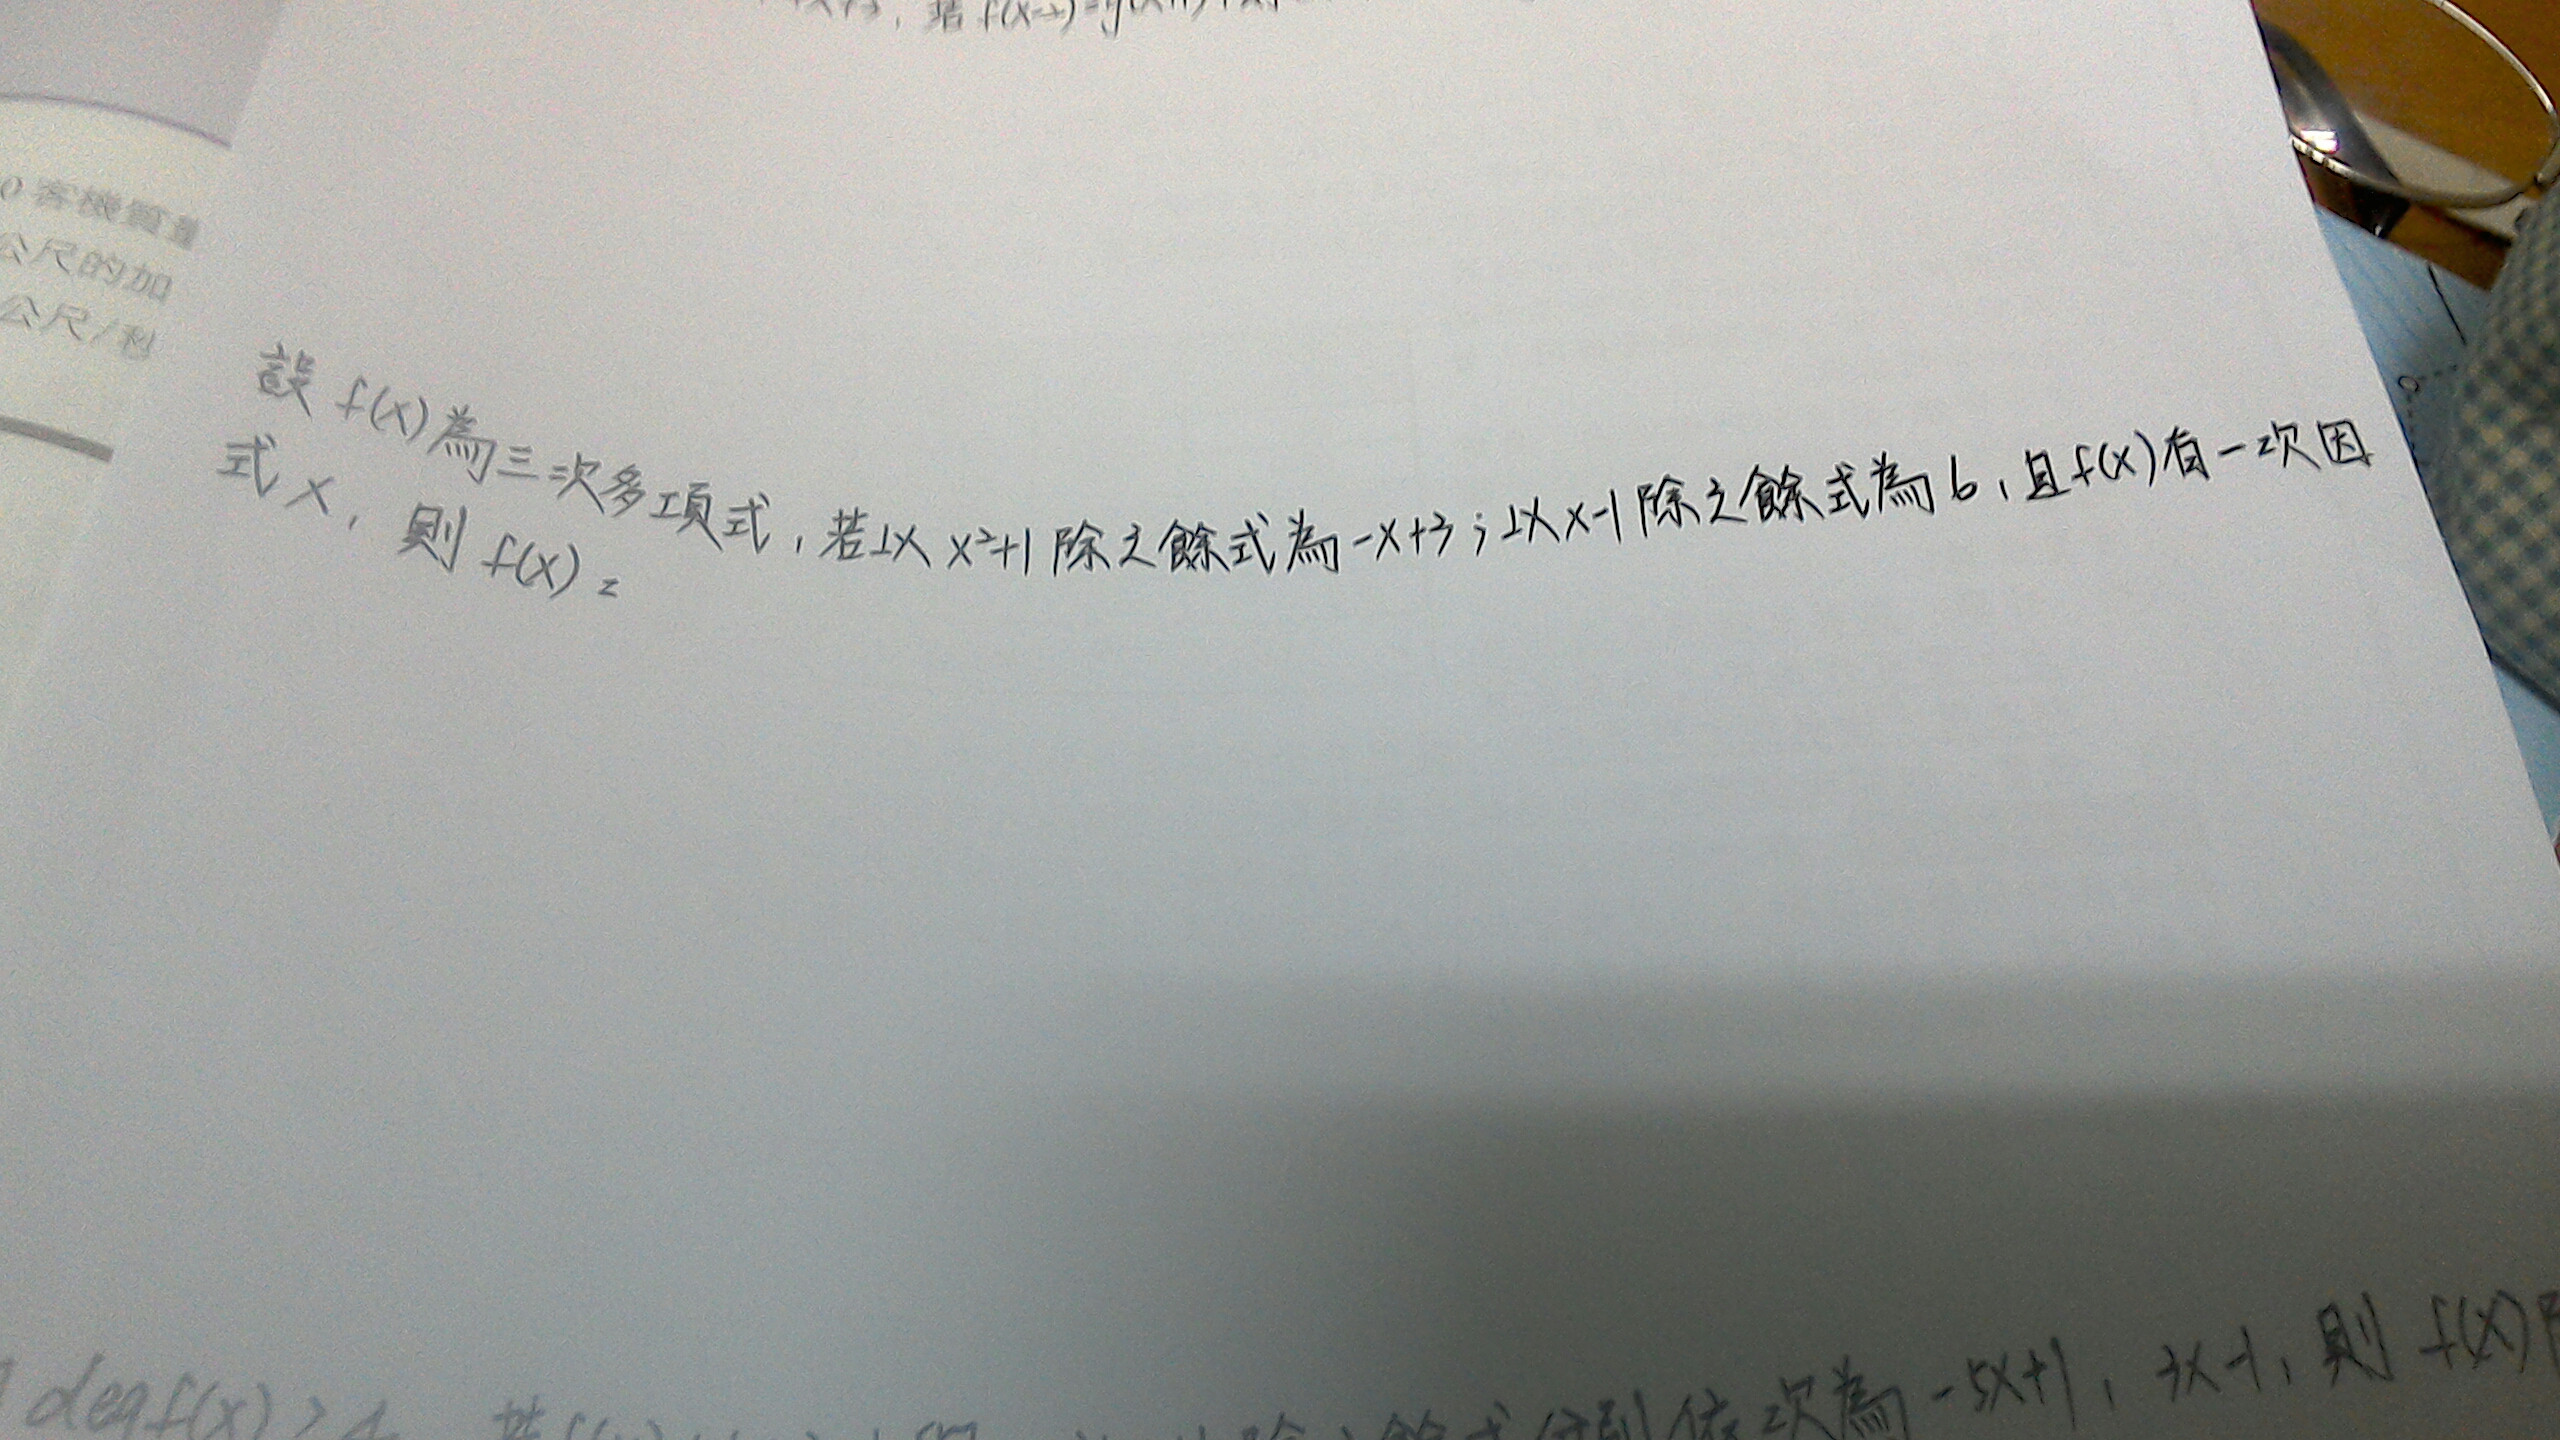 若 f(x-2)=
客機質量
公尺的加
公尺/秒
設 f(x)為三次多項式,若以 x²+1 除之餘式為 -x+3;以 x-1 除之餘式為 6,且 f(x)有一次因
式 x,則 f(x)=
deg f(x)>4 若 除之餘式分別依次為 -5x+1, 3x-1, 則 f(x)